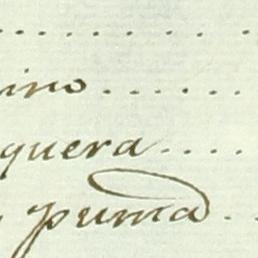 ino.....
quera....
puma..